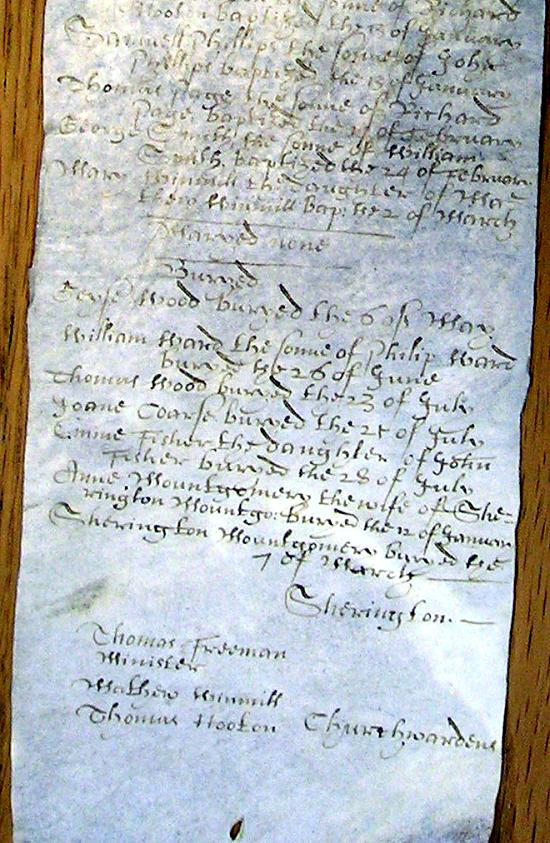 sonne of Richard
Hooton baptized the 13 of January
Samuell Phillips the sonne of John
Phillips baptized the 13 of January
Thomas Page the sonne of Richard
Page baptized the of February
George Smith the sonne of William
Smith baptized the 24 of February
Mary Winmill the daughter of Ma-
thew Winmill bap: the 2 of March
Maryed none
Buryed
Wood buryed the 6 of May
William Ward the sonne of Philip Ward
buryed the 26 of June
Thomas Wood buryed the 23 of July
Joane Coarse buryed the 25 of July
Emme Fisher the daughter of John
Fisher buryed the 28 of July
Anne Mountgomery the wife of She-
rington Mountgo: buryed the 12 of January
Sherington Mountgomery buryed the
7 of March
Sherington.
Thomas Freeman
Minister
Mathew Winmill
Thomas Hooton Churchwardens